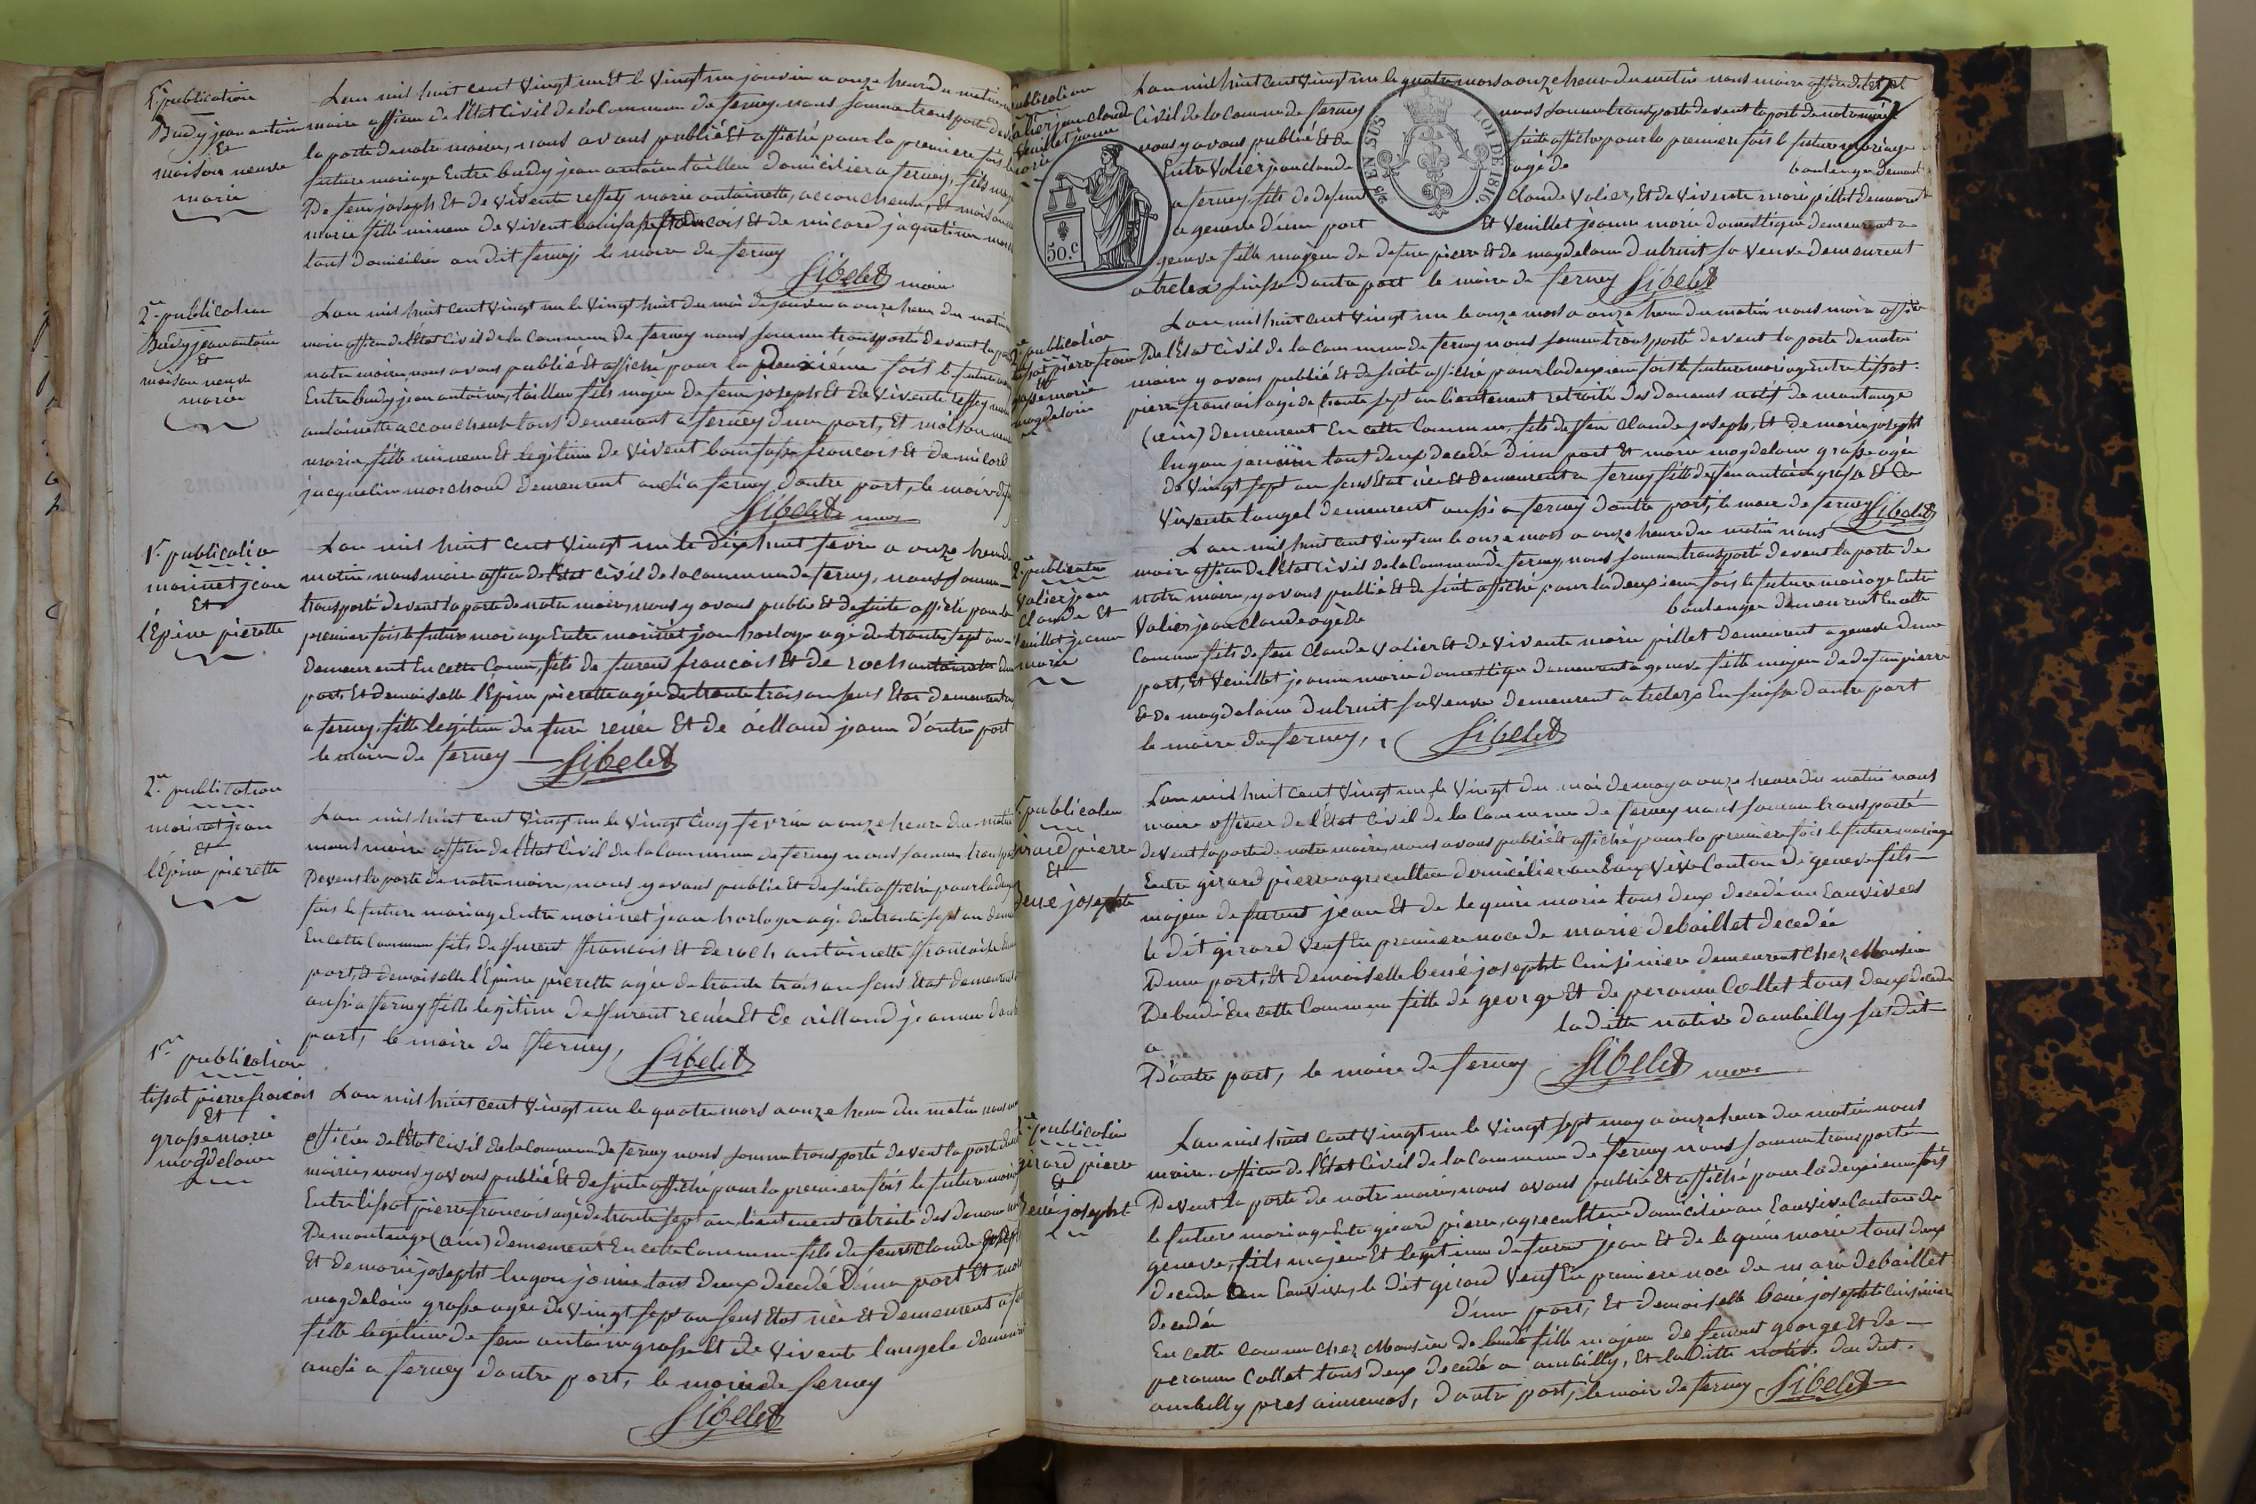 1e. publication
Budy jean antoine
Et
maison neuve
marie
Lan mil huit cent vingt un Et le vingt un janvier a onze heure du matin
maire officier de l'Etat Civil de la Commune de ferney nous somme transporté devent
la porte de notre mairie, nous avons publié Et affiché pour la premiere fois le
future mariage Entre budy jean antoine tailleur domicilier a ferney, fils majeur
De feu joseph Et de vivente reffety marie antoinette, accoucheuse, Et maison neuve
marie fille mineure de vivent bonifasse francois Et de micard jaqueline
tous domicilier au dit ferney, le maire de ferney
Sibelet maire
2e. publication
Budy jean antoine
Et
maison neuve
marie
Lan mil huit cent vingt un le vingt huit du moi de janvier a onze heure du matin
maire officier de l'Etat Civil de la Commune De ferney nous somme transporté devent la porte
notre mairie, nous avons publié Et affiché pour la Deuxiéme fois le future
Entre budy jean antoine, tailleur fils majeur de feu joseph Et de vivente reffey marie
antoinette accoucheuse tous demeurent a ferney d'une part, Et maison neuve
marie, fille mineure Et legitime de vivent bonifasse francois Et de micard
jacqueline marchand demeurent aussi a ferney d'autre part, le maire de
Sibelet maire
1e. publication
morinet jean
Et
l'Epine pierette
Lan mil huit cent vingt un le dix huit fevrie a onze heure du
matin, nous maire officier de l'Etat Civil de la commune de ferney, nous somme
transporté devent la porte de notre mairie, nous y avons publié Et de suite affiché pour la
premiere fois le future mariage Entre morinet jean horloger agé de trante sept an
demeurent En cette Commune, fils de furent francois Et de roch antoinette d'une
part, Et demoiselle l'Epine pierette agée de trante trois an sens Etat demeurent
a ferney, fille legitime de fure renée Et de aillaud jeanne d'autre part
le maire de ferney Sibelet
2e. publication
morinet jean
Et
l'Epine pierette
Lan mil huit cent vingt un le vingt cinq fevrier a onze heure du matin
nous maire officier de l'Etat Civil de la Commune de ferney nous somme transporté
Devent la porte de notre mairie, nous y avons publié Et de suite affiché pour la deuxieme
fois le future mariage Entre morinet jean horloger agé de trante sept an demeurent
En cette Commune fils de furent francois Et de roch antoinette francoise d'une
part, Et demoiselle l'Epine pierette agée de trante trois an sens Etat demeurent
aussi a ferney fille legitime De furent renée Et de aillaud jeanne d'autre
part, le maire de ferney, Sibelet
1re publication
tissot pierre francois
Et
grosse marie
magdelaine
Lan mil huit cent vingt un le quatre mars a onze heure du matin nous maire
officier de l'Etat Civil de la Commune de ferney nous somme transporté devent la porte de notre
mairie, nous y avons publié Et de suite affiché pour la premiere fois le future mariage
Entre tissot pierre francois agé de trante sept an lieutenent retraité des douane natif
De montange (ain) demeurent En cette Commune fils de feu Claude joseph
Et de marie josepht lugon janin tous deux decedé D'une part Et marie
magdelaine grosse agée de vingt sept an sens Etat née Et demeurent a ferney
fille legitime de feu antoine grosse Et de vivente l'angele demeurent
aussi a ferney d'autre part, le maire de ferney
Sibelet
2
publication
valier jean claude
veuillet jeanne
marie
Lan mil huit cent vingt un le quatre mars a onze heure du matin nous maire officier de l'Etat
Civil de la Commune de ferney nous somme transporté devent la porte de notre mairie
nous y avons publié Et de suite affiché pour la premiere fois le future mariage
Entre Valier jean claude agé de boulenger demeurent
a ferney, fils de defunt Claude Valier, Et de vivente marie pillet demeurent
a geneve d'une part Et veuillet jeanne marie domestique demeurent a
geneve fille majeure de defun pierre Et de magdelaine Dubruit sa veuve demeurent
a trelex suisse d'autre part le maire de ferney Sibelet
25 EN SUS
LOI DE 1816
50.c
2e publication
tissot pierre francois
Et
grosse marie
magdelaine
Lan mil huit cent vingt un le onze mars a onze heure du matin nous maire officier
De l'Etat Civil de la Commune de ferney nous somme transporté devent la porte de notre
mairie y avons publié Et de suite affiché pour la deuxieme fois le future mariage Entre tissot
pierre francois agé de trante sept an lieutenent retraité des Douanes natif de montange
(ain) demeurent En cette Commune, fils de feu Claude joseph, Et de marie josepht
lugon janin tous deux decedé D'une part Et marie magdelaine grosse agée
de vingt sept an sens Etat née Et demeurent a ferney fille de feu antoine grosse Et de
vivente langel demeurent aussi a ferney d'autre part, le maire de ferney Sibelet
2e publication
Valier jean
Claude Et
veuillet jeanne
marie
Lan mil huit cent vingt un le onze mars a onze heure du matin nous
maire officier de l'Etat Civil de la Commune de ferney, nous somme transporté devent la porte de
notre mairie, y avons publié Et de suite affiché pour la deuxieme fois le future mariage Entre
Valier jean Claude agé de boulenger demeurent En cette
Commune fils de feu Claude Valier Et de vivente marie pillet demeurent a geneve d'une
part, Et Veuillet jeanne marie domestique demeurent a geneve fille majeure de defun pierre
Et de magdelaine dubruit sa veuve demeurent a trelex En suisse d'autre part
le maire de ferney, Sibelet
1e publication
girard pierre
Et
bené josephte
Lan mil huit cent vingt un le vingt du moi de may a onze heure du matin nous
maire officier de l'Etat Civil de la Commune de ferney nous somme transporté
devent la porte de notre mairie, nous avons publié Et affiché pour la premiere fois le future mariage
Entre girard pierre agreculteur domicilier au Eaux vive Canton de geneve fils
majeur de furent jean Et de lequine marie tous deux decedé au Eauxvives
le dit girard veuf En premiere noce de marie debaillet decedée
D'une part, Et demoiselle bené josephte Cuisiniere demeurent chez Monsieur
De budé En cette Commune fille de george Et de peronne Collet tous deux decedé
a la ditte native dambilly sus dit
D'autre part, le maire de ferney Sibelet maire
2e publication
girard pierre
Et
bené josepht
Lan mil huit cent vingt un le vingt sept may a onze heure du matin nous
maire officier de l'Etat Civil de la Commune de ferney nous somme transporté
Devent la porte de notre mairie, nous avons publié Et affiché pour la deuxieme fois
le future mariage Entre girard pierre, agreculteur domicilié au Eauxvive Canton de
geneve, fils majeur Et legitime de furent jean Et de lequine marie tous deux
decedé au Eauxvives, le dit girard veuf En premiere noce de marie debaillet
decedée d'une part, Et demoiselle bené josephte Cuisiniere
En cette Commune chez Monsieur de budé fille majeure de furent george Et de
peronne Collet tous deux decedé a ambilly, Et la ditte native dau dit
ambilly pres annemas, d'autre part, le maire de ferney Sibelet